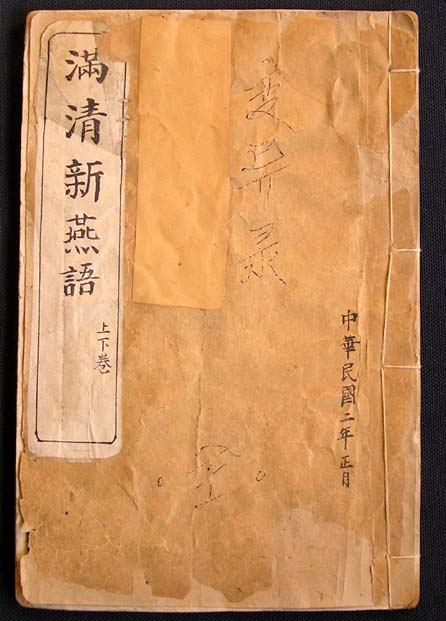 中華民國二年正月
全
滿清新燕語
上下卷